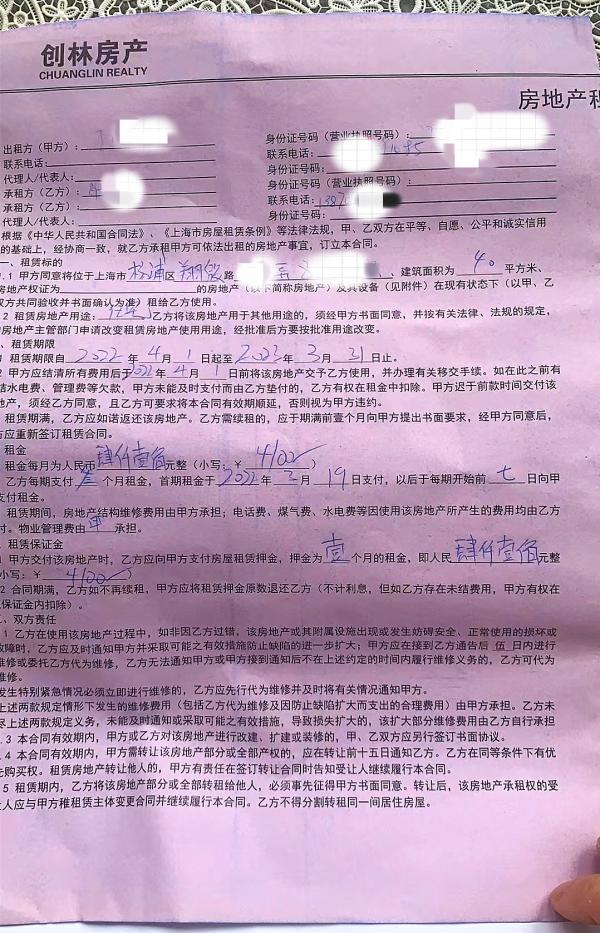 创林房产
CHUANGLIN REALTY
房地产租
出租方（甲方）：
身份证号码（营业执照号码）：
联系电话：
联系电话：
代理人/代表人：
身份证号码：
承租方（乙方）：
身份证号码（营业执照号码）：
承租方（乙方）：
联系电话：
代理人/代表人：
身份证号码：
根据《中华人民共和国合同法》、《上海市房屋租赁条例》等法律法规，甲、乙双方在平等、自愿、公平和诚实信用
的基础上，经协商一致，就乙方承租甲方可依法出租的房地产事宜，订立本合同。
一、租赁标的
1.1 甲方同意将位于上海市杨浦区翔殷路 弄 、建筑面积为40平方米、
房地产权证为 的房地产（以下简称房地产）及其设备（见附件）在现有状态下（以甲、乙
双方共同验收并书面确认为准）租给乙方使用。
2 租赁房地产用途： 乙方将该房地产用于其他用途的，须经甲方书面同意，并按有关法律、法规的规定，
房地产主管部门申请改变租赁房地产使用用途，经批准后方要按批准用途改变。
、租赁期限
1 租赁期限自2022年4月1日起至2023年3月31日止。
2 甲方应结清所有费用后于2022年4月1日前将该房地产交予乙方使用，并办理有关移交手续。如在此之前有
结水电费、管理费等欠款，甲方未能及时支付而由乙方垫付的，乙方有权在租金中扣除。甲方迟于前款时间交付该
地产，须经乙方同意，且乙方可要求将本合同有效期顺延，否则视为甲方违约。
租赁期满，乙方应如诺返还该房地产。乙方需续租的，应于期满前壹个月向甲方提出书面要求，经甲方同意后，
方应重新签订租赁合同。
租金
租金每月为人民币肆仟壹佰元整（小写：￥4100）
乙方每期支付叁个月租金，首期租金于2022年3月19日支付，以后于每期开始前七日向甲
支付租金。
租赁期间，房地产结构维修费用由甲方承担；电话费、煤气费、水电费等因使用该房地产所产生的费用均由乙方
付。物业管理费由甲承担。
租赁保证金
1 甲方交付该房地产时，乙方应向甲方支付房屋租赁押金，押金为壹个月的租金，即人民肆仟壹佰元整
小写：￥4100）
2 合同期满，乙方如不再续租，甲方应将租赁押金原数退还乙方（不计利息，但如乙方存在未结费用，甲方有权在
保证金内扣除）。
、双方责任
1 乙方在使用该房地产过程中，如非因乙方过错，该房地产或其附属设施出现或发生妨碍安全、正常使用的损坏或
故障时，乙方应及时通知甲方并采取可能之有效措施防止缺陷的进一步扩大；甲方应在接到乙方通告后 伍 日内进行
维修或委托乙方代为维修，乙方无法通知甲方或甲方接到通知后不在上述约定的时间内履行维修义务的，乙方可代为
维修。
发生特别紧急情况必须立即进行维修的，乙方应先行代为维修并及时将有关情况通知甲方。
上述两款规定情形下发生的维修费用（包括乙方代为维修及因防止缺陷扩大而支出的合理费用）由甲方承担。乙方未
尽上述两款规定义务，未能及时通知或采取可能之有效措施，导致损失扩大的，该扩大部分维修费用由乙方自行承担
.3 本合同有效期内，甲方或乙方对该房地产进行改建、扩建或装修的，甲、乙双方应另行签订书面协议。
.4 本合同有效期内，甲方需转让该房地产部分或全部产权的，应在转让前十五日通知乙方。乙方在同等条件下有优
先购买权。租赁房地产转让他人的，甲方有责任在签订转让合同时告知受让人继续履行本合同。
5 租赁期内，乙方将该房地产部分或全部转租给他人，必须事先征得甲方书面同意。转让后，该房地产承租权的受
人应与甲方稚租赁主体变更合同并继续履行本合同。乙方不得分割转租同一间居住房屋。